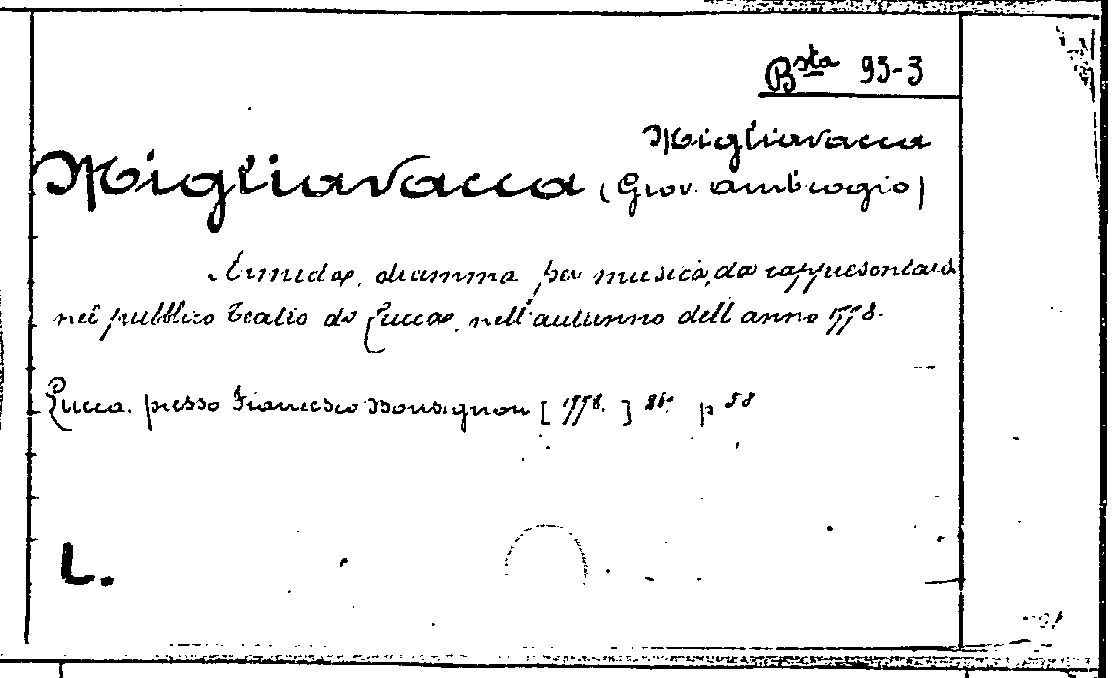 Bsta 93-3
Migliavacca
Migliavacca (Giov. Ambrogio)
Armida, dramma per musica, da rappresentarsi
nel pubblico teatro di Lucca, nell'autunno dell'anno 1778.
Lucca. presso Francesco Bonsignori [1778.] 8º. p 58
L.